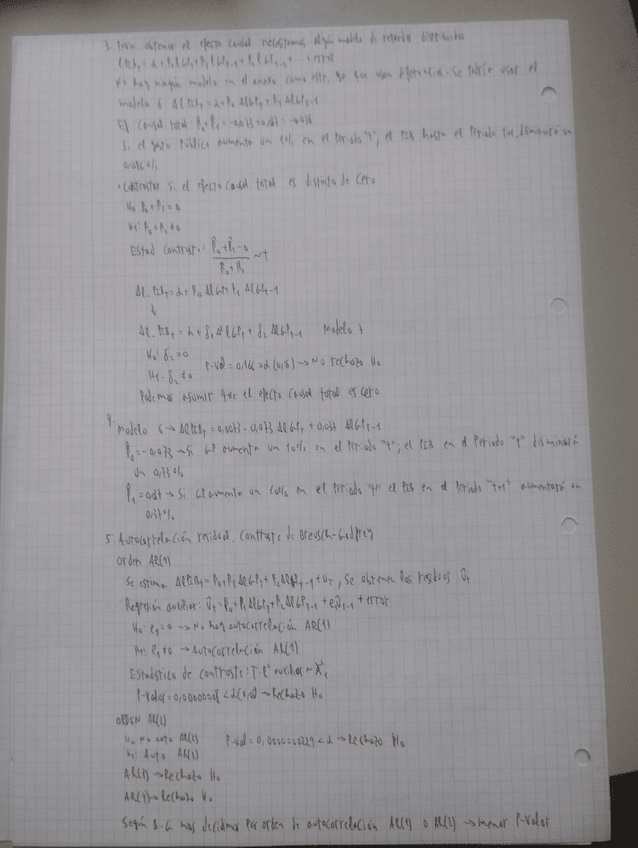 3. Para obtener el efecto causal necesitamos algún modelo de retardos distribuidos
l PIB_t = α + β₀ l GP_t + β₁ l GP_t-1 + β₂ l GP_t-2 + ... + error
No hay ningún modelo en el anexo como este, ya que usan diferencias. Se podría usar el
modelo 6 Δl PIB_t = α + β₀ Δl GP_t + β₁ Δl GP_t-1
Ef causal total: β₀ + β₁ =
Si el gasto público aumenta un 1% en el periodo "t", el PIB hasta el periodo t+1, disminuirá un
• Contrastar si el efecto causal total es distinto de cero
H₀: β₀ + β₁ = 0
H₁: β₀ + β₁ ≠ 0
Estad contraste: β̂₀ + β̂₁ - 0 ~ t
β₀ + β₁
Δl_PIB_t = α + β₀ Δl GP_t + β₁ Δl GP_t-1
↓
Δl_PIB_t = α + δ₁ Δ²l GP_t + δ₂ Δl GP_t-1 Modelo 7
H₀: δ₂ = 0
H₁: δ₂ ≠ 0 P-val = → No rechazo H₀
Podemos asumir que el efecto causal total es cero
4. Modelo 6 → Δl PIB_t = - 0,073 Δl GP_t + Δl GP_t-1
β̂₀ = -0,073 → Si GP aumenta un 10% en el periodo "t", el PIB en el Periodo "t" disminuirá
un 0,73%
β̂₁ = → Si GP aumenta un 10% en el periodo "t" el PIB en el periodo "t+1" aumentará un
5. Autocorrelación residual. Contraste de Breusch-Godfrey
Orden AR(1)
Se estima Δl PIB_t = β₀ + β₁ Δl GP_t + β₂ Δl GP_t-1 + u_t, se obtienen los residuos û_t
Regresión auxiliar: û_t = β₀ + β₁ Δl GP_t + β₂ Δl GP_t-1 + ρ₁û_t-1 + error
H₀: ρ₁ = 0 → No hay autocorrelación AR(1)
H₁: ρ₁ ≠ 0 → Autocorrelación AR(1)
Estadístico de contraste: T·R² auxiliar ~ χ²₁
P-valor = < α → Rechazo H₀
ORDEN AR(2)
H₀: No auto AR(2) P-val = 0,0000000229 < α → Rechazo H₀
H₁: Auto AR(2)
→ Rechazo H₀
AR(4) → Rechazo H₀
Según B-G nos decidimos por orden de autocorrelación AR(1) o AR(2) → menor P-valor